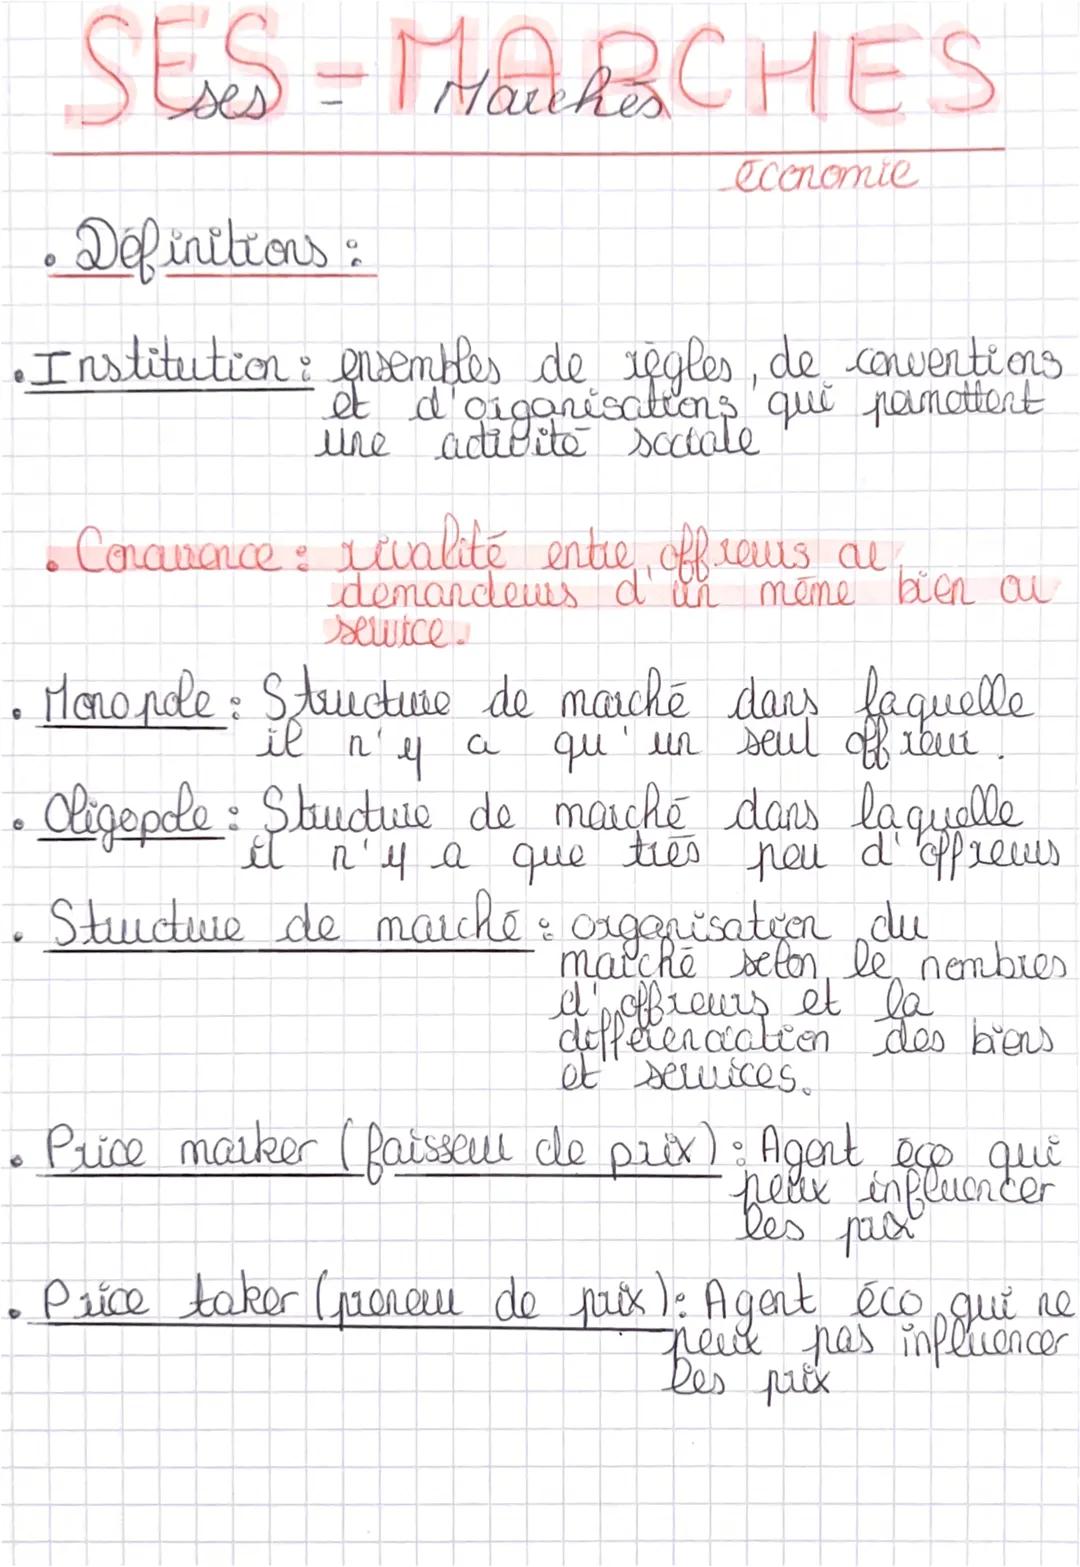 SES - MARCHES
ses - Marchés
économie
. Définitions :
. Institution : ensembles de règles, de conventions
et d'organisations qui permettent
une activité sociale
. Concurence : rivalité entre offreurs ou
demandeurs d'un même bien ou
service.
. Monopole : Structure de marché dans laquelle
il n'y a qu'un seul offreur.
. Oligopole : Structure de marché dans laquelle
il n'y a que très peu d'offreurs
. Structure de marché : organisation du
marché selon le nombres
d'offreurs et la
différenciation des biens
et services.
. Price marker (faisseur de prix) : Agent éco qui
peux influencer
les prix
. Price taker (preneur de prix) : Agent éco qui ne
peux pas influencer
les prix